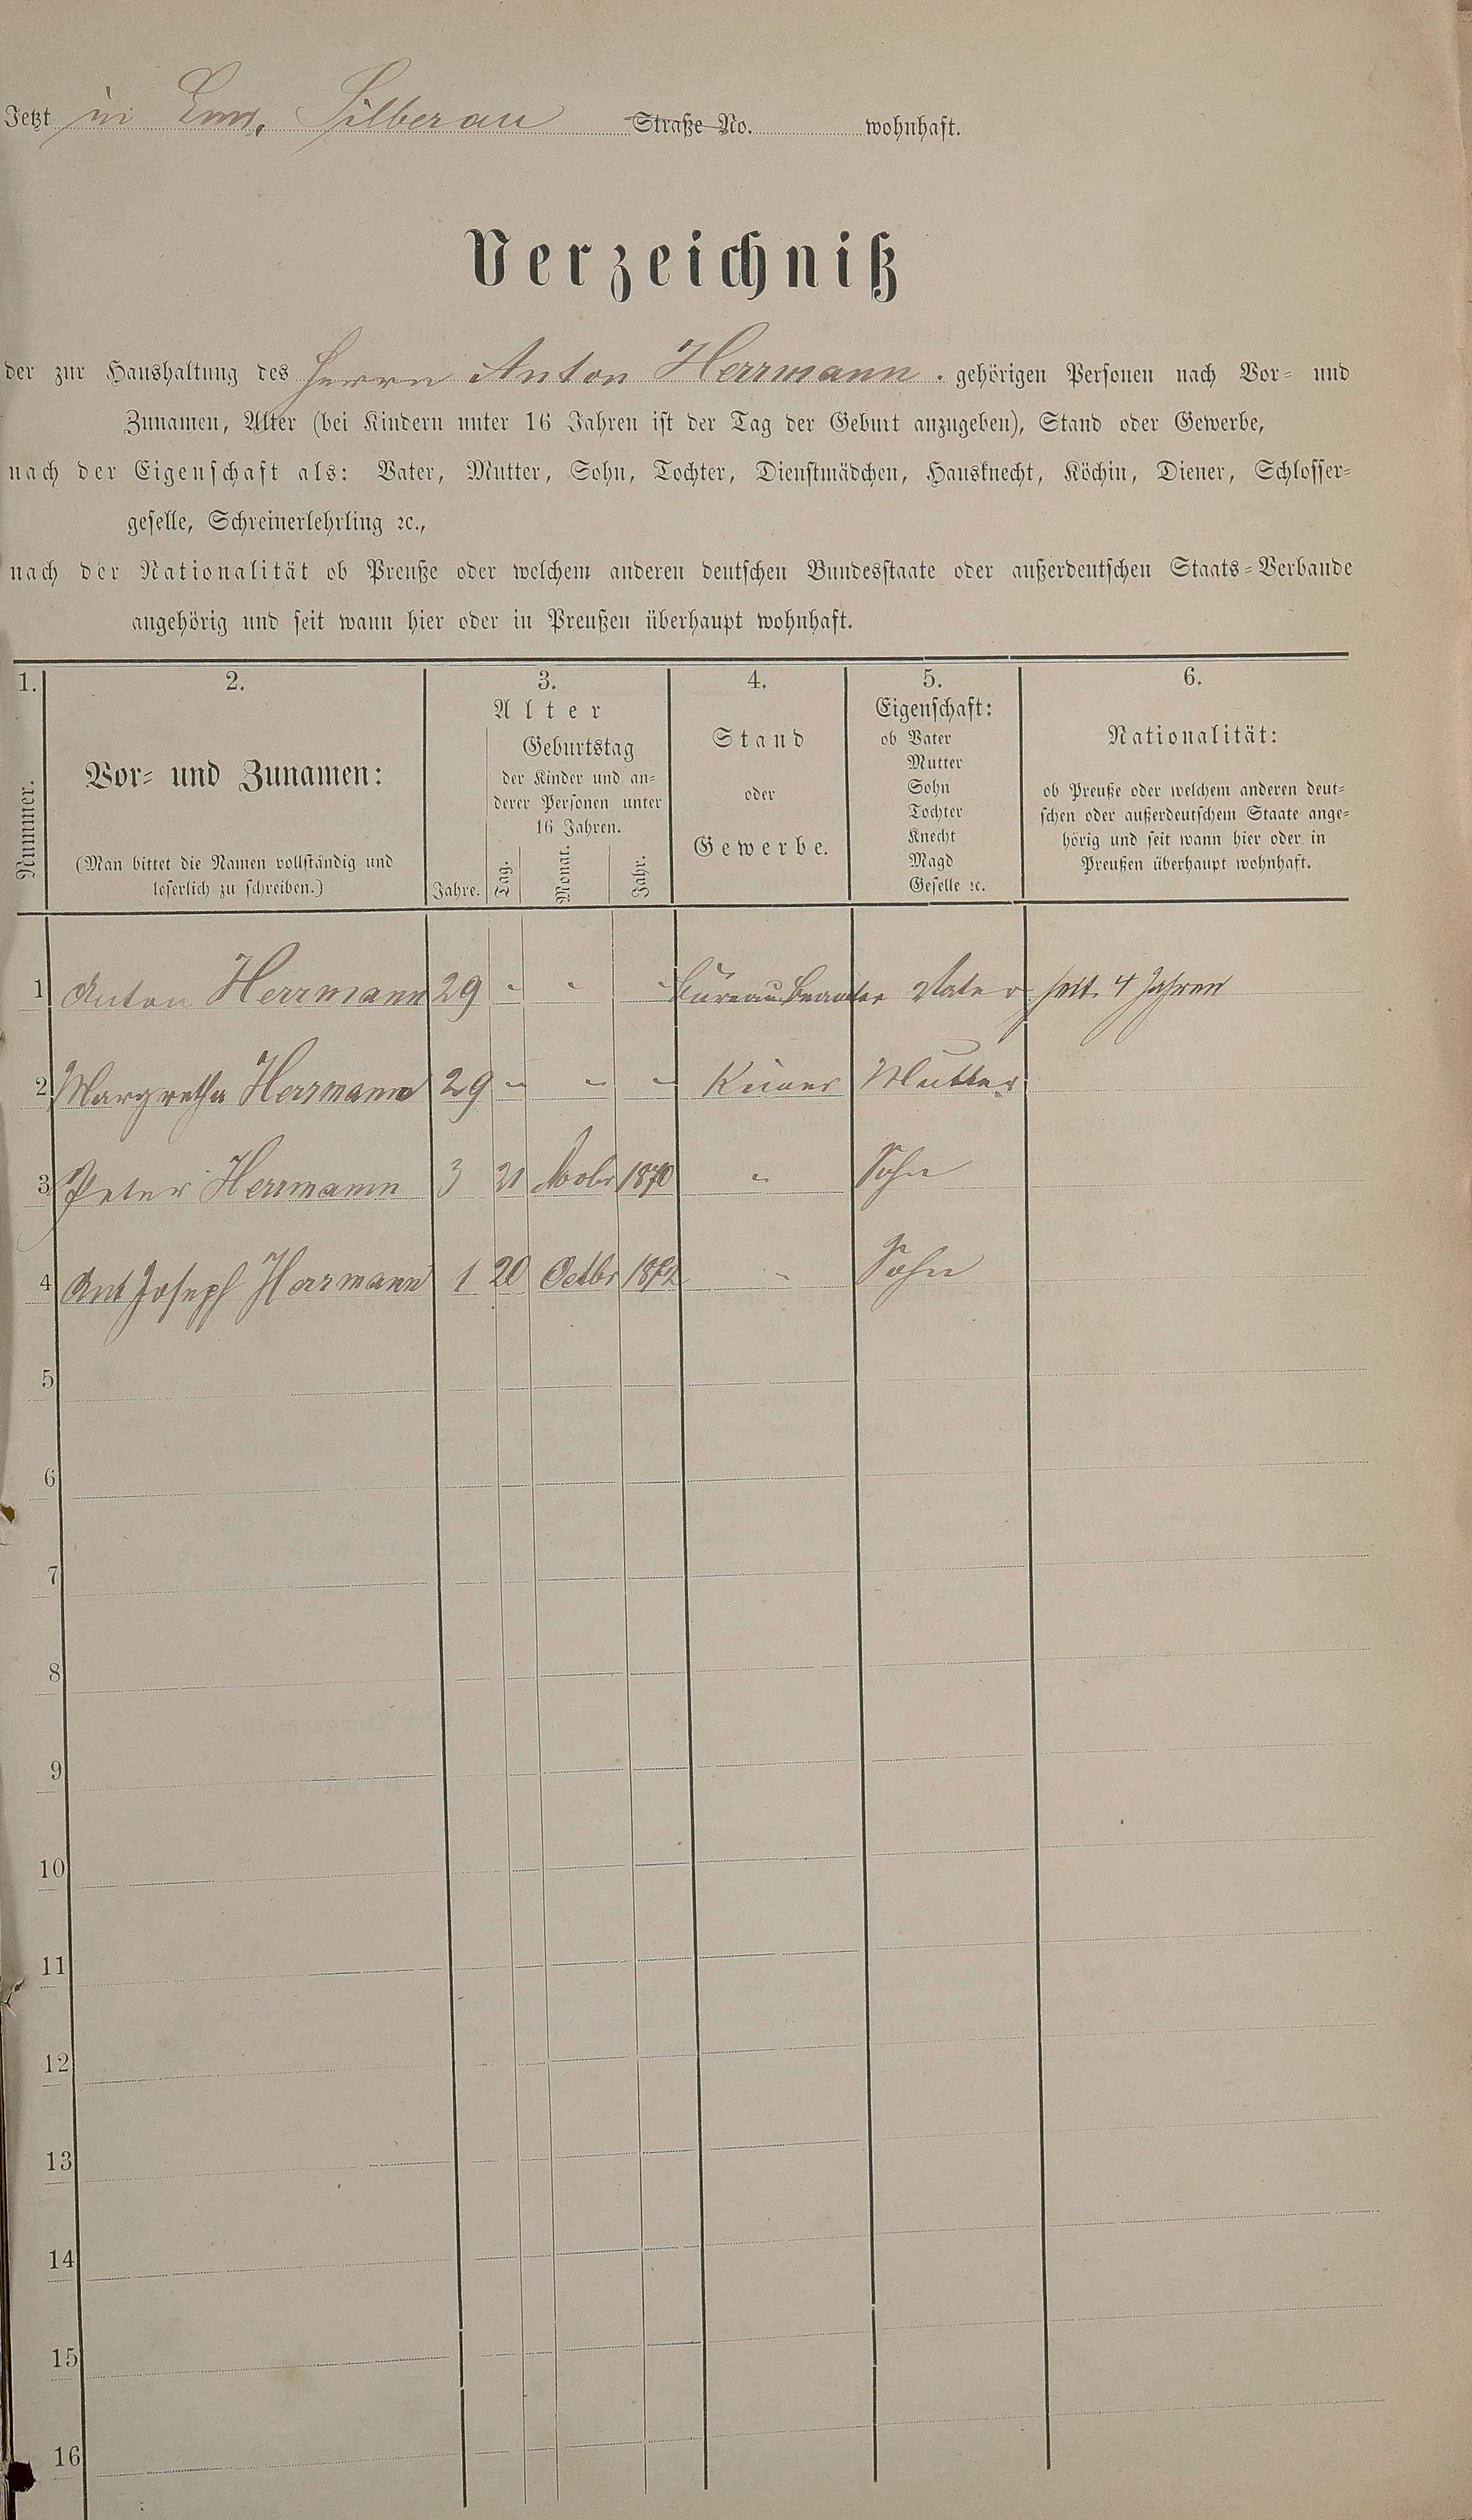 Jetzt in Ems, Silberau Straße No. wohnhaft.
Verzeichniß
der zur Haushaltung des Herrn Anton Herrmann. gehörigen Personen nach Vor- und
Zunamen, Alter (bei Kindern unter 16 Jahren ist der Tag der Geburt anzugeben), Stand oder Gewerbe,
nach der Eigenschaft als: Vater, Mutter, Sohn, Tochter, Dienstmädchen, Hausknecht, Köchin, Diener, Schlosser-
geselle, Schreinerlehrling ꝛc.,
nach der Nationalität ob Preuße oder welchem anderen deutschen Bundesstaate oder außerdeutschen Staats-Verbande
angehörig und seit wann hier oder in Preußen überhaupt wohnhaft.
1.
Nummer.
2.
Vor- und Zunamen:
(Man bittet die Namen vollständig und
leserlich zu schreiben.)
3.
Alter
Jahre.
Geburtstag
der Kinder und an-
derer Personen unter
16 Jahren.
Tag. Monat. Jahr.
4.
Stand
oder
Gewerbe.
5.
Eigenschaft:
ob Vater
Mutter
Sohn
Tochter
Knecht
Magd
Geselle ꝛc.
6.
Nationalität:
ob Preuße oder welchem anderen deut-
schen oder außerdeutschem Staate ange-
hörig und seit wann hier oder in
Preußen überhaupt wohnhaft.
1 Anton Herrmann 29 - - - Büreaubeamter Vater seit 4 Jahren
2 Margretha Herrmann 29 - - - Mutter
3 Peter Herrmann 3 21 Novbr 1870 - Sohn
4 Ant Joseph Herrmann 1 20 Octbr 1872 - Sohn
5
6
7
8
9
10
11
12
13
14
15
16